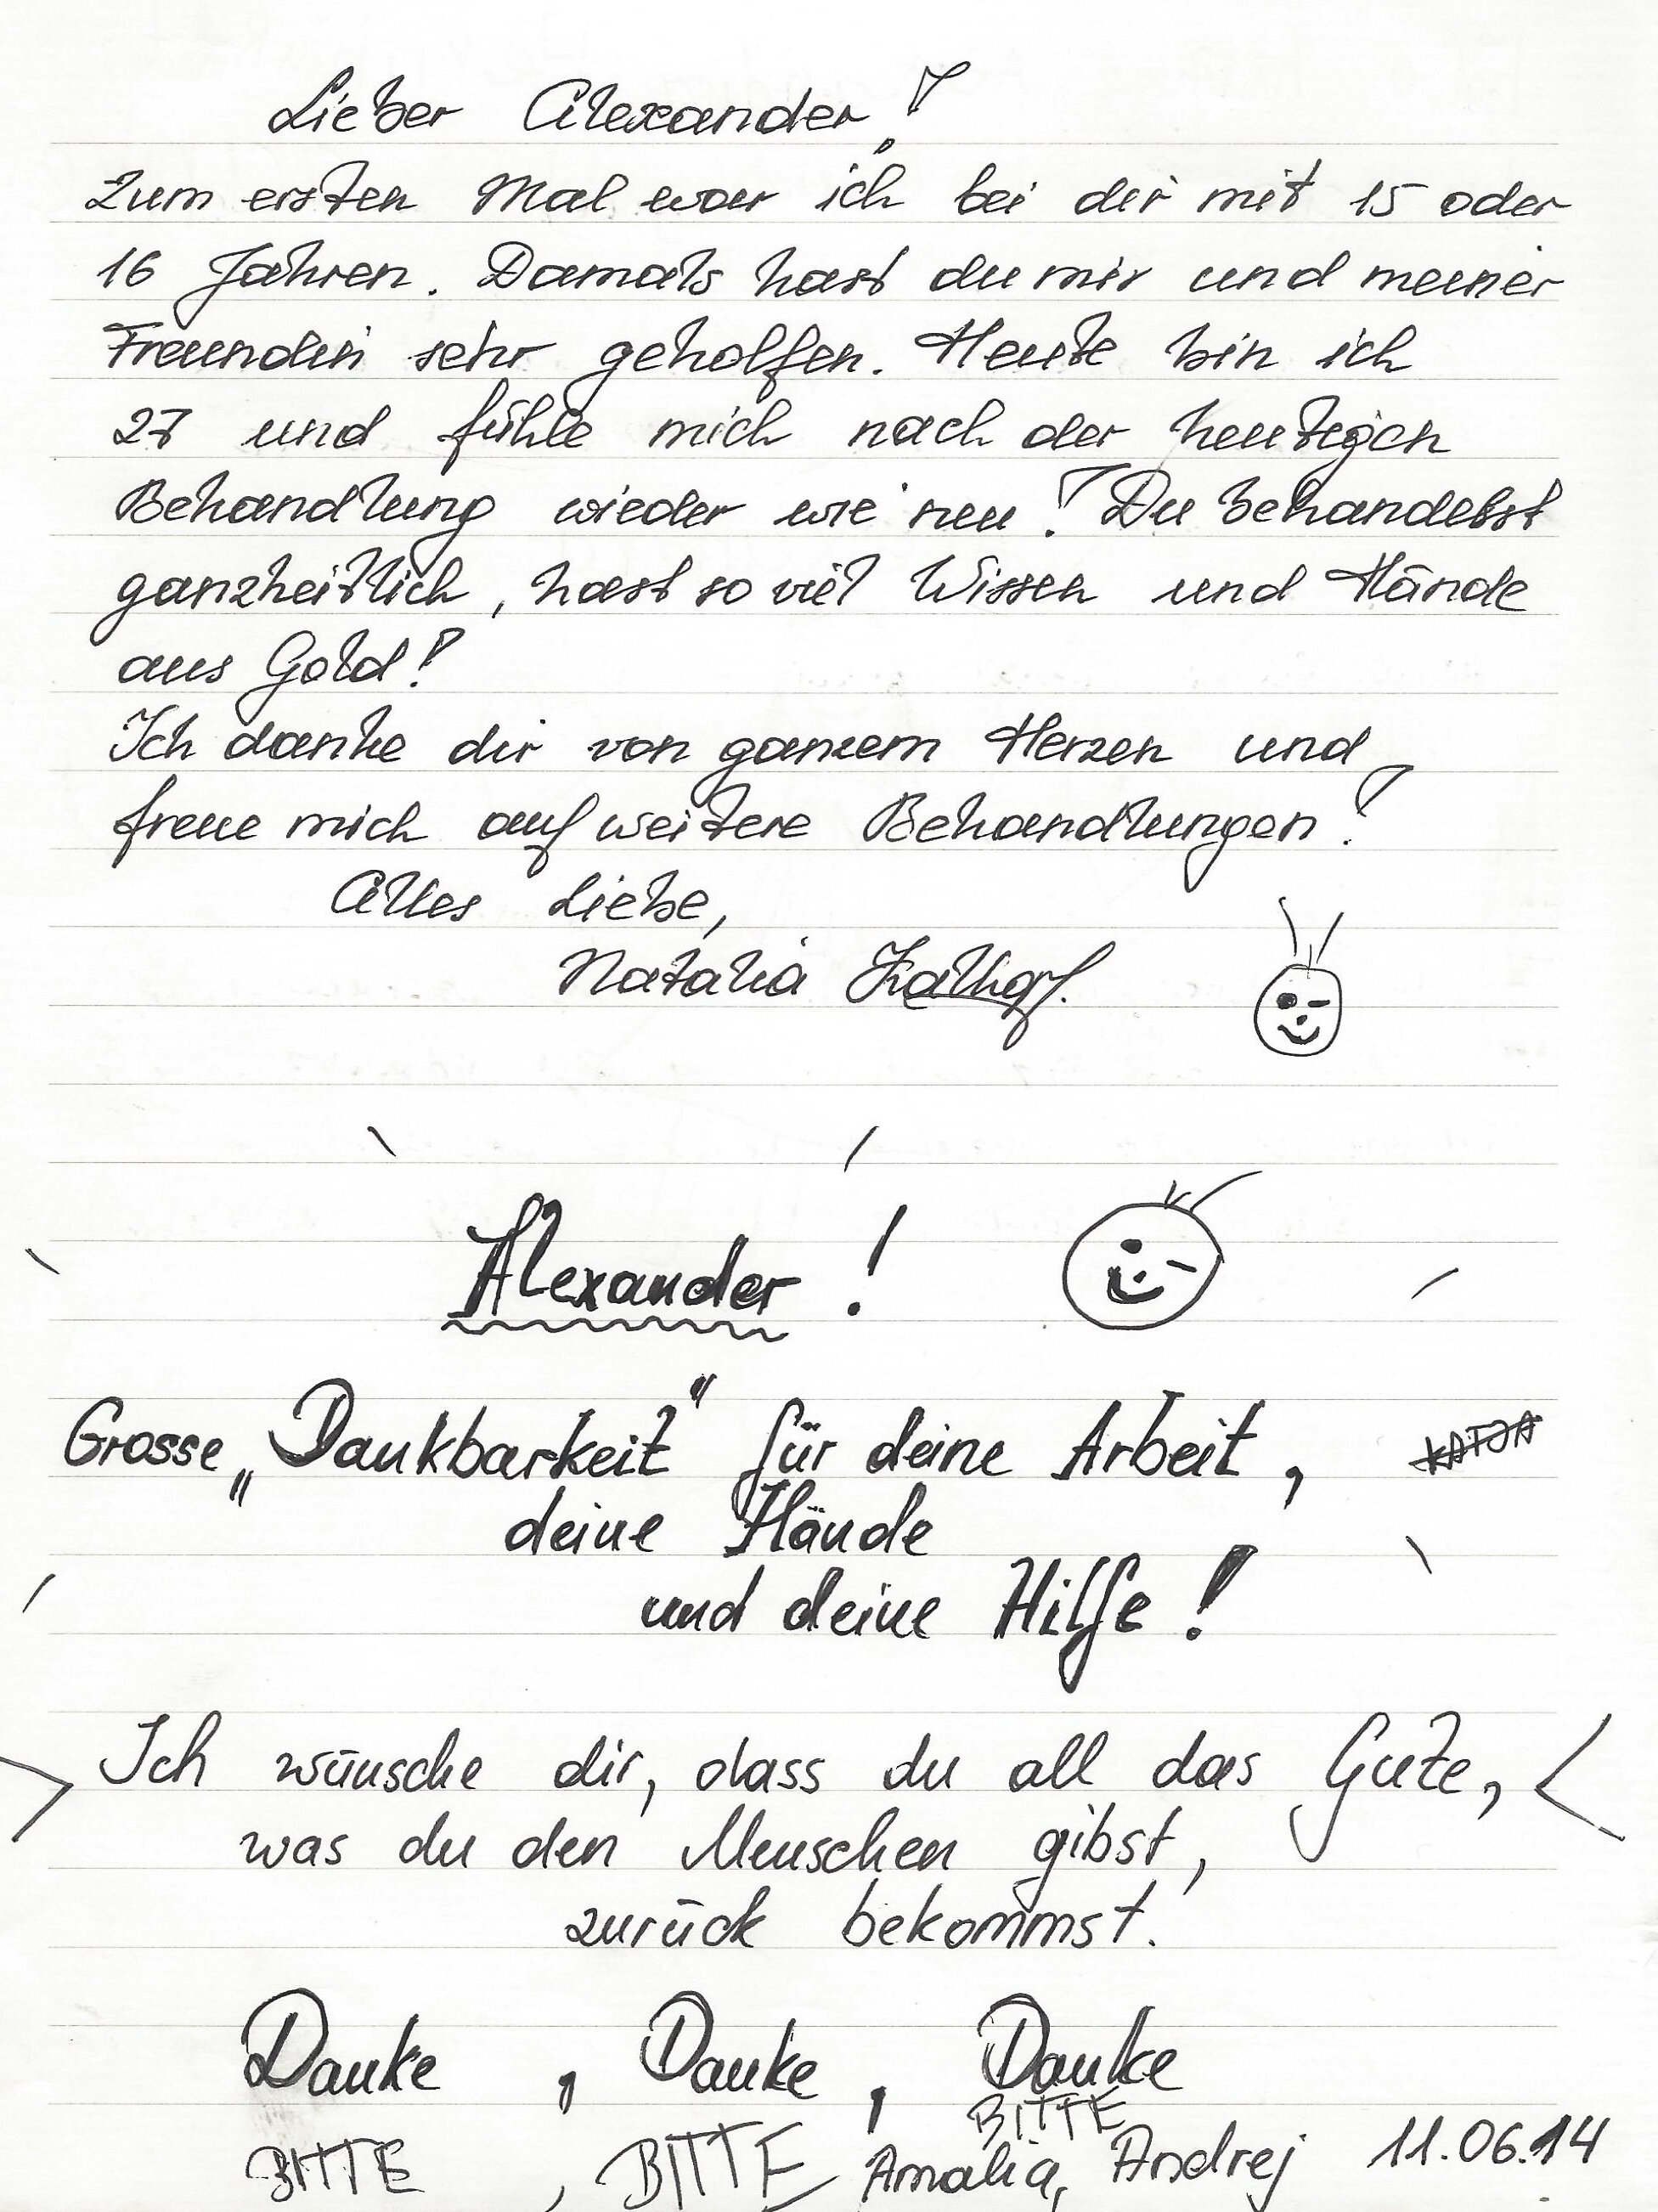 Lieber Alexander!
Zum ersten Mal war ich bei dir mit 15 oder
16 Jahren. Damals hast du mir und meiner
Freundin sehr geholfen. Heute bin ich
27 und fühle mich nach der heutigen
Behandlung wieder wie neu! Du behandelst
ganzheitlich, hast so viel Wissen und Hände
aus Gold!
Ich danke dir von ganzem Herzen und
freue mich auf weitere Behandlungen!
Alles Liebe,
Natalia
Alexander!
Grosse „Dankbarkeit" für deine Arbeit,
deine Hände
und deine Hilfe!
Ich wünsche dir, dass du all das Gute,
was du den Menschen gibst,
zurück bekommst.
Danke, Danke, Danke
BITTE, BITTE BITTE
Amalia, Andrej 11.06.14